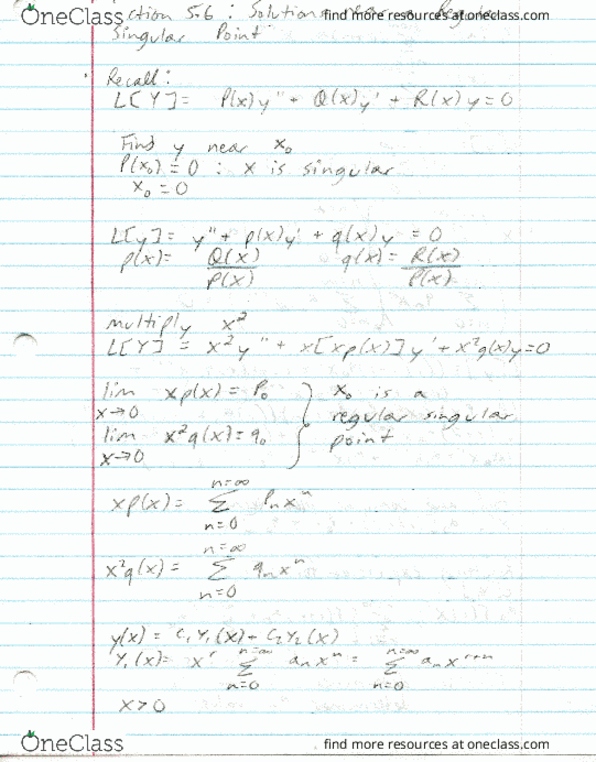 OneClass
find more resources at oneclass.com
ction 5.6 : Solutions
Singular Point
Recall :
L[Y] = P(x)y" + Q(x)y' + R(x)y = 0
Find y near x₀
P(x₀) = 0 : x is singular
x₀ = 0
L[y] = y" + p(x)y' + q(x)y = 0
p(x) = Q(x)/P(x) q(x) = R(x)/P(x)
multiply x²
L[Y] = x²y" + x[xp(x)]y' + x²q(x)y = 0
lim x→0 xp(x) = P₀ } x₀ is a
regular singular
lim x→0 x²q(x) = q₀ point
xp(x) = Σ n=0 n=∞ Pₙxⁿ
x²q(x) = Σ n=0 n=∞ qₙxⁿ
y(x) = C₁Y₁(x) + C₂Y₂(x)
Y₁(x) = xʳ Σ n=0 n=∞ aₙxⁿ = Σ n=0 n=∞ aₙxʳ⁺ⁿ
x > 0
OneClass
find more resources at oneclass.com